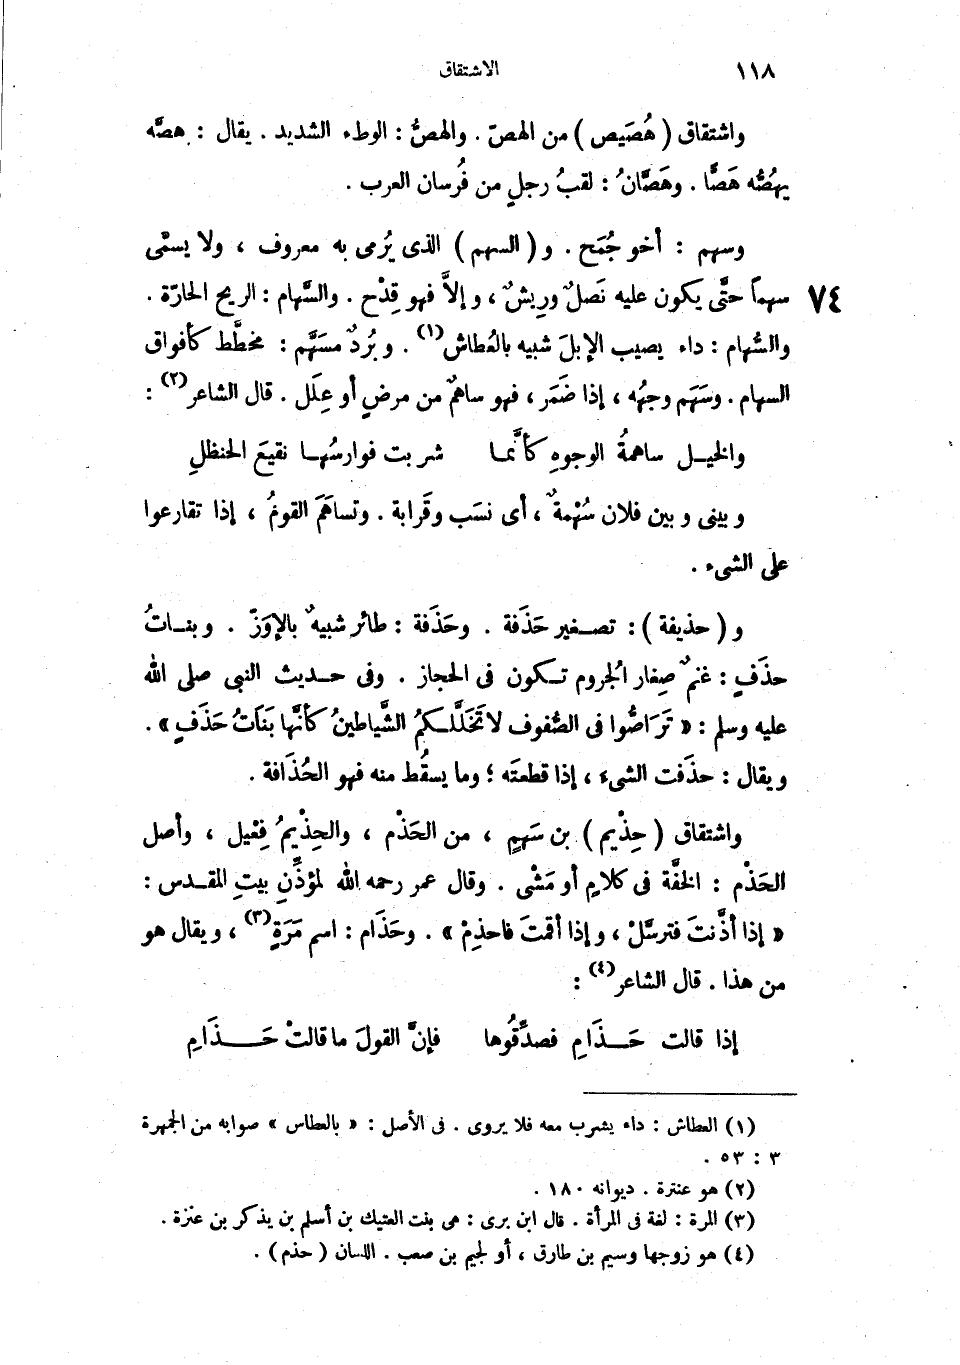 ١١٨ الاشتقاق
واشتقاق ( هُصَيص ) من الهصّ . والهصُّ : الوطء الشديد . يقال : هصَّه
يهُصُّه هَصًّا . وهَصَّانُ : لقبُ رجلٍ من فُرسان العرب .
وسهم : أخو جُمَح . و ( السهم ) الذى يُرمى به معروف ، ولا يسمَّى
٧٤ سهماً حتَّى يكون عليه نَصلٌ ورِيشٌ ، وإلاَّ فهو قِدْح . والسَّهام : الريح الحارّة .
والسُّهام : داء يصيب الإبلَ شبيه بالعُطاش(١) . وبُردٌ مسَهَّم : مخطَّط كأفواق
السهام . وسَهَم وجهُه ، إذا ضَمَر ، فهو ساهمٌ من مرضٍ أو عِلَل . قال الشاعر(٢) :
والخيـل ساهمةُ الوجوهِ كأنَّمـا شربت فوارسُهـا نقيعَ الحنظلِ
وبينى وبين فلان سُهْمةٌ ، أى نسَب وقَرابة . وتساهَمَ القومُ ، إذا تقارعوا
على الشىء .
و ( حذيفة ) : تصـغير حَذَفة . وحَذَفة : طائر شبيهٌ بالإوَزّ . وبنـاتُ
حذَفٍ : غنمٌ صِغار الجُروم تـكون فى الحجاز . وفى حـديث النبى صلى الله
عليه وسلم : « تَرَاصُّوا فى الصُّفوف لا تَخَلَّلـكمُ الشَّياطينُ كأنَّها بَنَاتُ حَذَفٍ » .
ويقال : حذَفت الشىء ، إذا قطعتَه ؛ وما يسقُط منه فهو الحُذَافة .
واشتقاق ( حِذْيم ) بن سَهمٍ ، من الحَذْم ، والحِذْيمُ فِعْيل ، وأصل
الحَذْم : الخفَّة فى كلامٍ أو مَشْى . وقال عمر رحمه الله لمؤذِّنِ بيتِ المقـدس :
« إذا أذَّنتَ فترسَّلْ ، وإذا أقمتَ فاحذِمْ » . وحَذَام : اسم مَرَةٍ(٣) ، ويقال هو
من هذا . قال الشاعر(٤) :
إذا قالت حَـذَامِ فصدِّقُوها فإنَّ القولَ ما قالتْ حَـــذَامِ
(١) العطاش : داء يشرب معه فلا يروى . فى الأصل : « بالعطاس » صوابه من الجمهرة
٣ : ٥٣ .
(٢) هو عنترة . ديوانه ١٨٠ .
(٣) المرة : لغة فى المرأة . قال ابن برى : هى بنت العتيك بن أسلم بن يذكر بن عنزة .
(٤) هو زوجها وسيم بن طارق ، أو لجيم بن صعب . اللسان ( حذم ) .